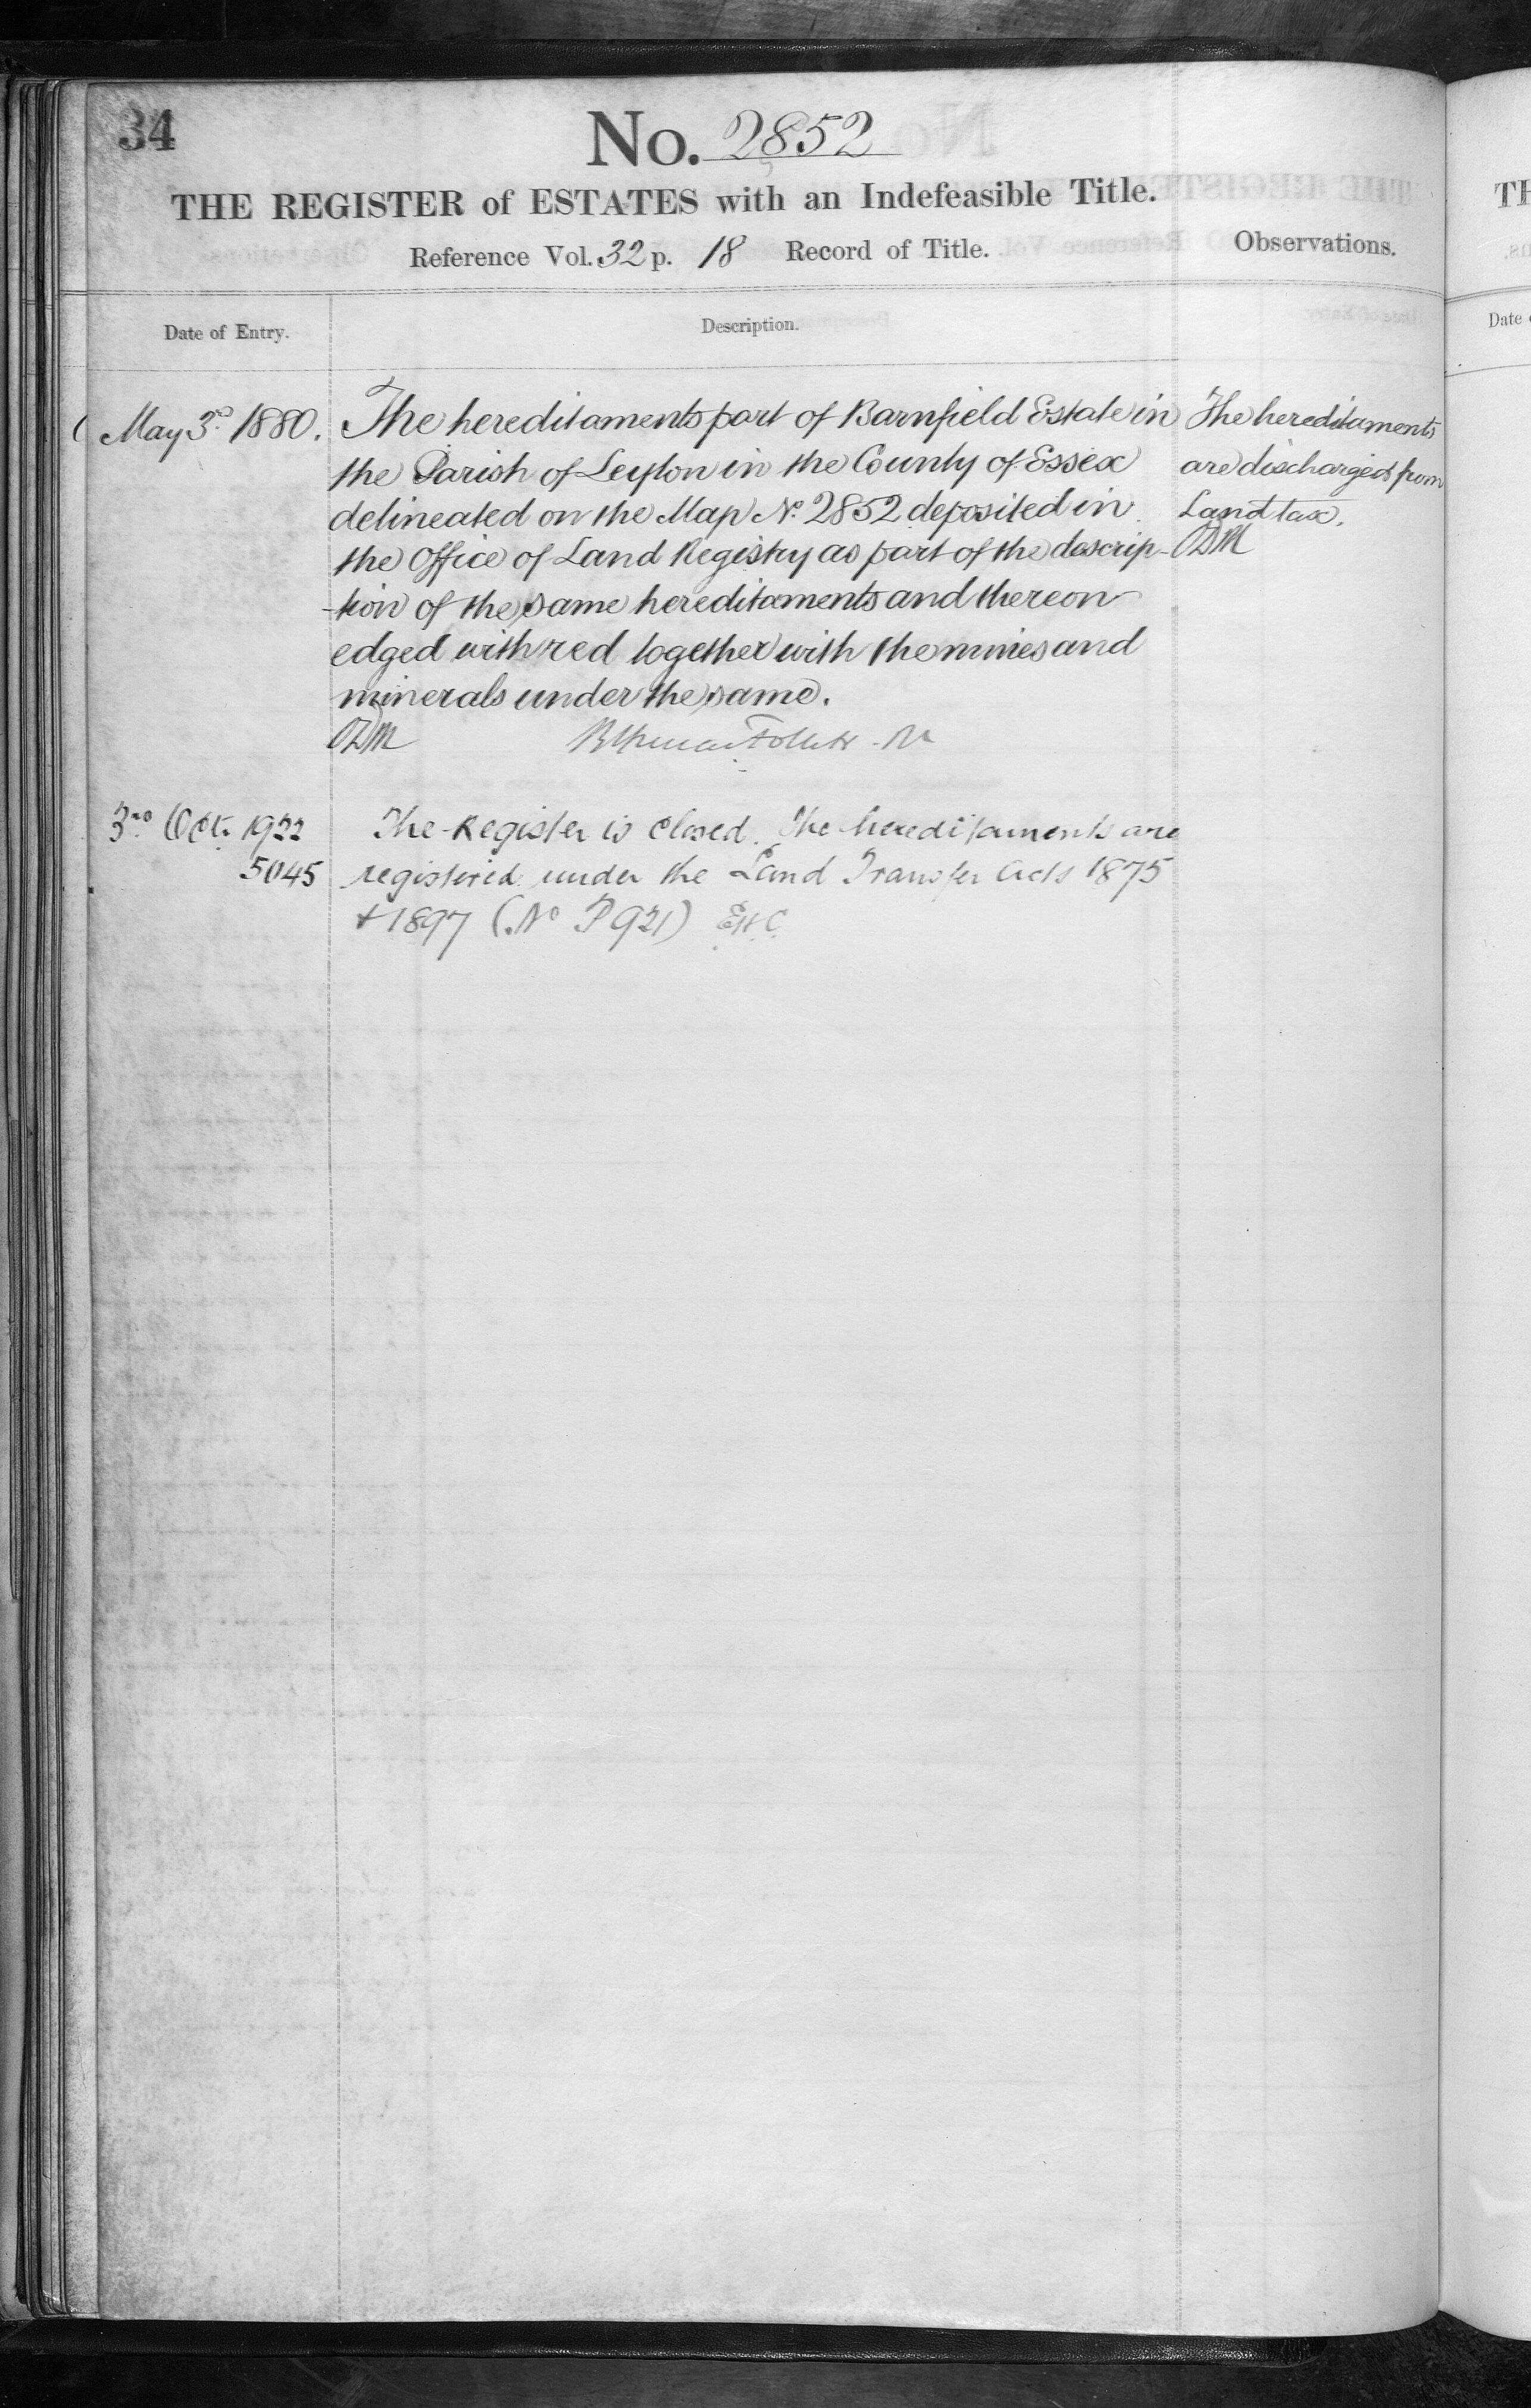 34
No. 2852
THE REGISTER of ESTATES with an Indefeasible Title.
Reference Vol. 32 p. 18 Record of Title.
Observations.
Date of Entry.
Description.
May 3d 1880.
The hereditaments part of Barnfield Estate in
the Parish of Leyton in the County of Essex
delineated on the Map No. 2852 deposited in
the Office of Land Registry as part of the descrip-
-tion of the same hereditaments and thereon
edged with red together with the mines and
minerals under the same.
The hereditaments
are discharged from
Land tax.
3rd Oct. 1922
5045
The Register is closed. The hereditaments are
registered under the Land Transfer Acts 1875
+ 1897 (No P 921) EHC
TH
Date